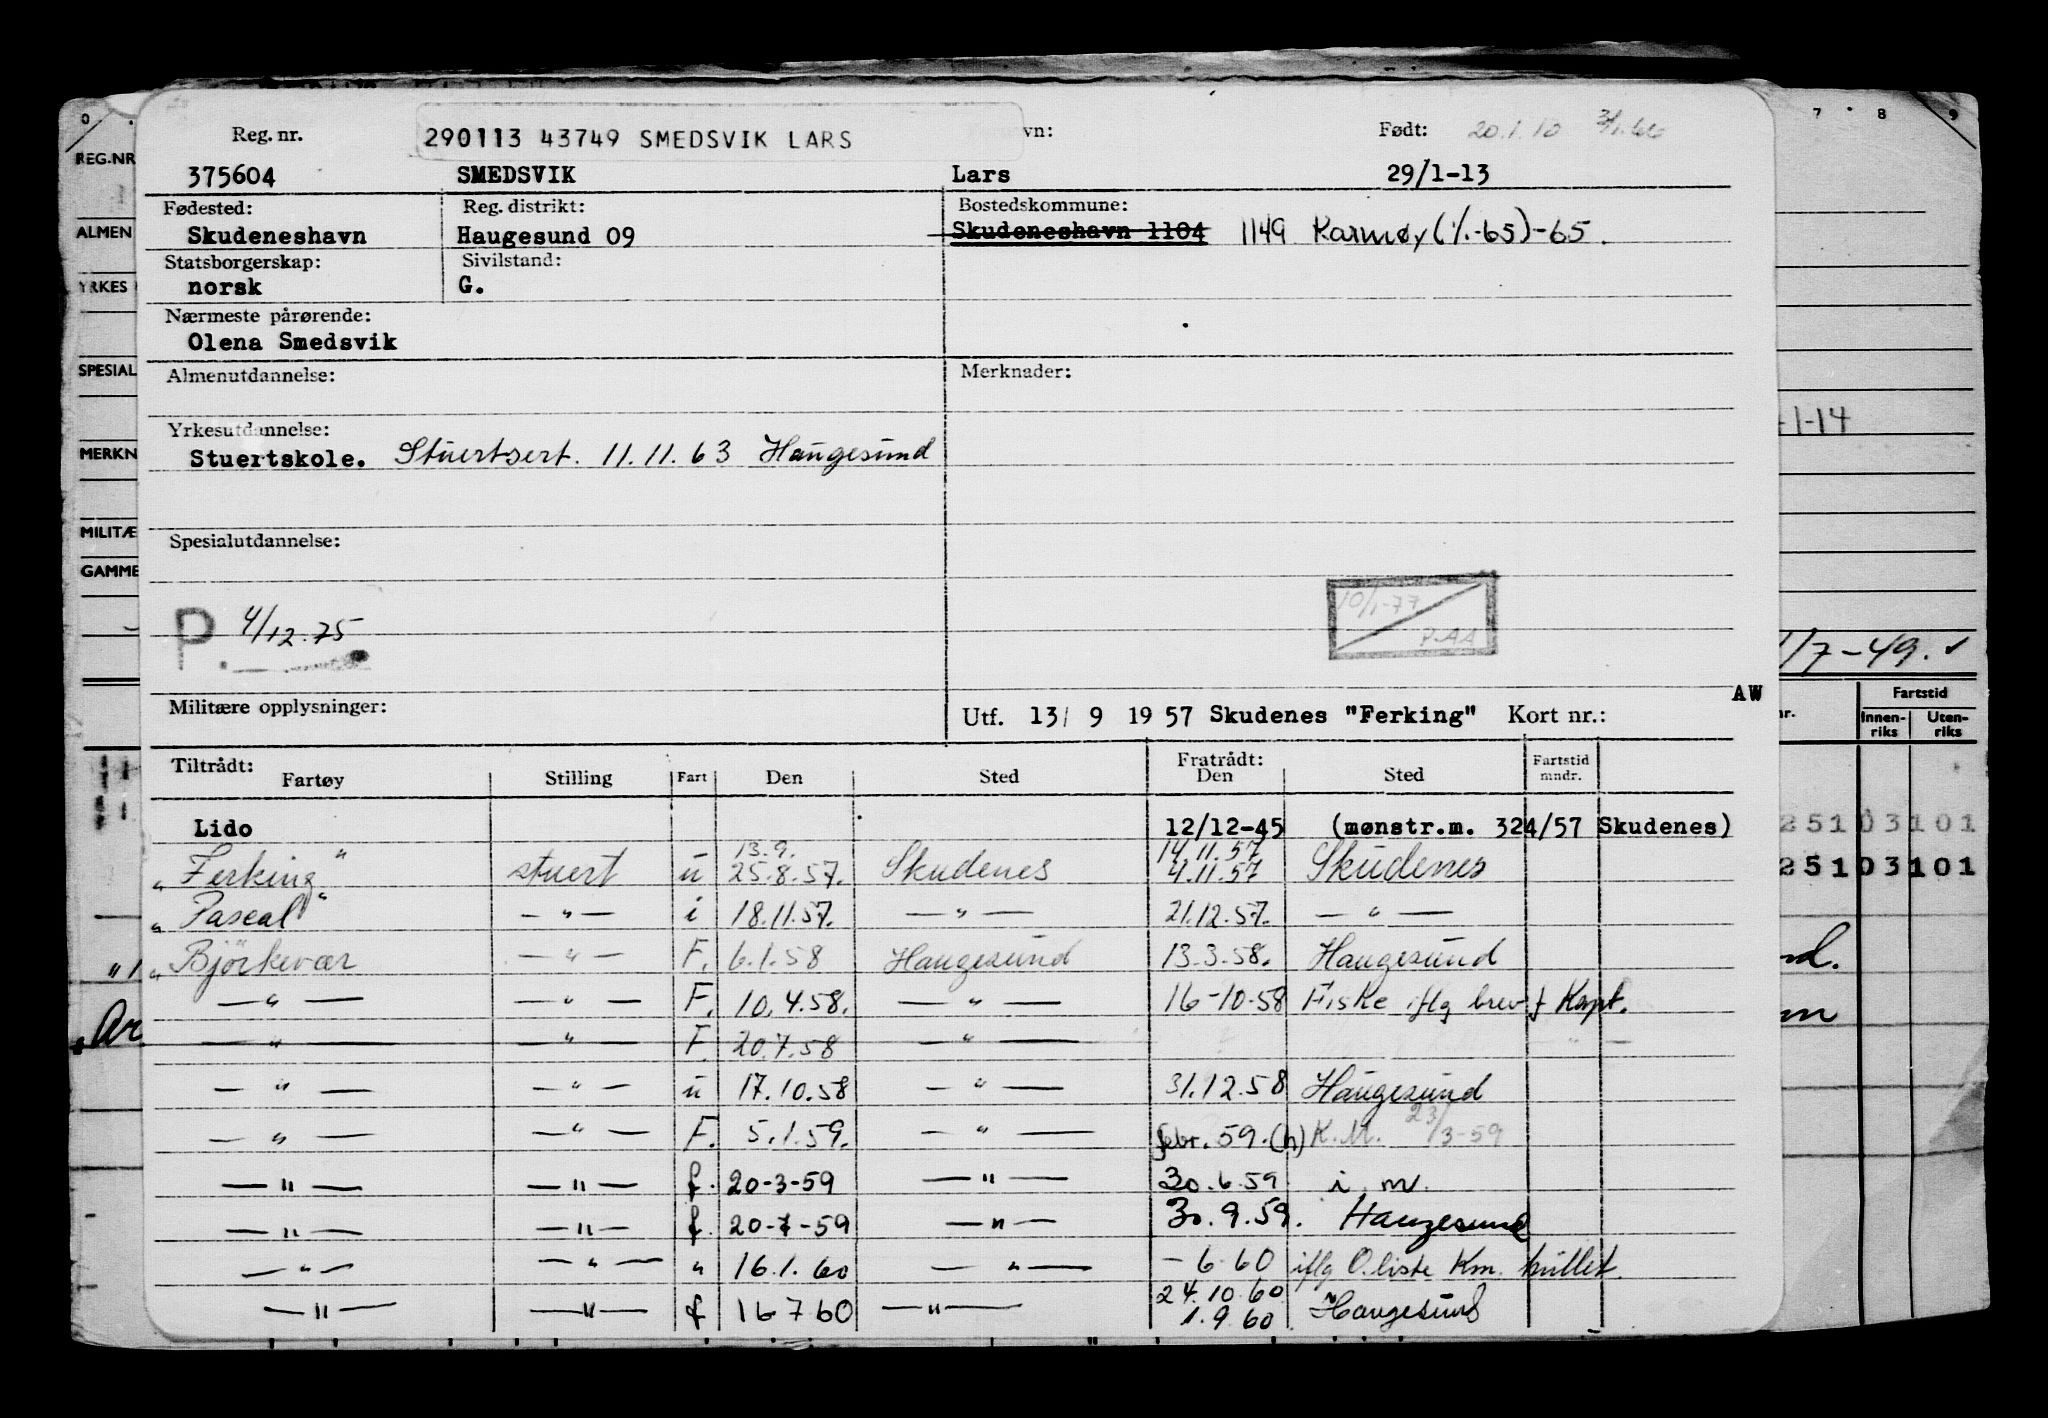 Reg. nr. 290113 43749 SMEDSVIK LARS vn: Født: 20.1.10 3/1.66
375604 SMEDSVIK Lars 29/1-13
Fødested: Reg. distrikt: Bostedskommune:
Skudeneshavn Haugesund 09 Skudeneshavn 1104 1149 Karmøy (1/1-65)-65.
Statsborgerskap: Sivilstand:
norsk G.
Nærmeste pårørende:
Olena Smedsvik
Almenutdannelse: Merknader:
Yrkesutdannelse:
Stuertskole. Stuertsert. 11.11.63 Haugesund
Spesialutdannelse:
10/1-77
P. 4/12.75 P.AA
Militære opplysninger: Utf. 13/ 9 1957 Skudenes "Ferking" Kort nr.: AW
Tiltrådt: Fratrådt: Fartstid
Fartøy Stilling Fart Den Sted Den Sted mndr.
Lido 12/12-45 (mønstr.m. 324/57 Skudenes)
13.9. 14.11.57
"Ferking" stuert u 25.8.57. Skudenes 4.11.57 Skudenes
"Pascal" — " — i 18.11.57. — " — 21.12.57. — " —
"Bjørkevær — " — F. 6.1.58 Haugesund 13.3.58. Haugesund
— " — — " — F. 10.4.58. — " — 16-10-58 Fiske iflg brev f Kapt.
— " — — " — F. 20.7.58 — " —
— " — — " — u 17.10.58 — " — 31.12.58 Haugesund
— " — — " — F. 5.1.59. — " — febr. 59.(h) K.M. 23/3-59
— " — — " — f. 20-3-59 — " — 30.6.59 i. m.
— " — — " — f. 20-7-59 — " — 30.9.59. Haugesund
— " — — " — " 16.1.60 — " — – 6 60 iflg O.liste Km. hullet.
24.10.60
— " — — " — f 16 7 60 — " — 1.9 60 Haugesund
0 7 8 9
REG.NR
ALMEN
YRKES
SPESIAL
MERKN
MILITÆ
GAMME
-1-14
1/7-49. ✓
Fartstid
nr. Innen-riks Uten-riks
25103101
25103101
nd.
m
"Ar